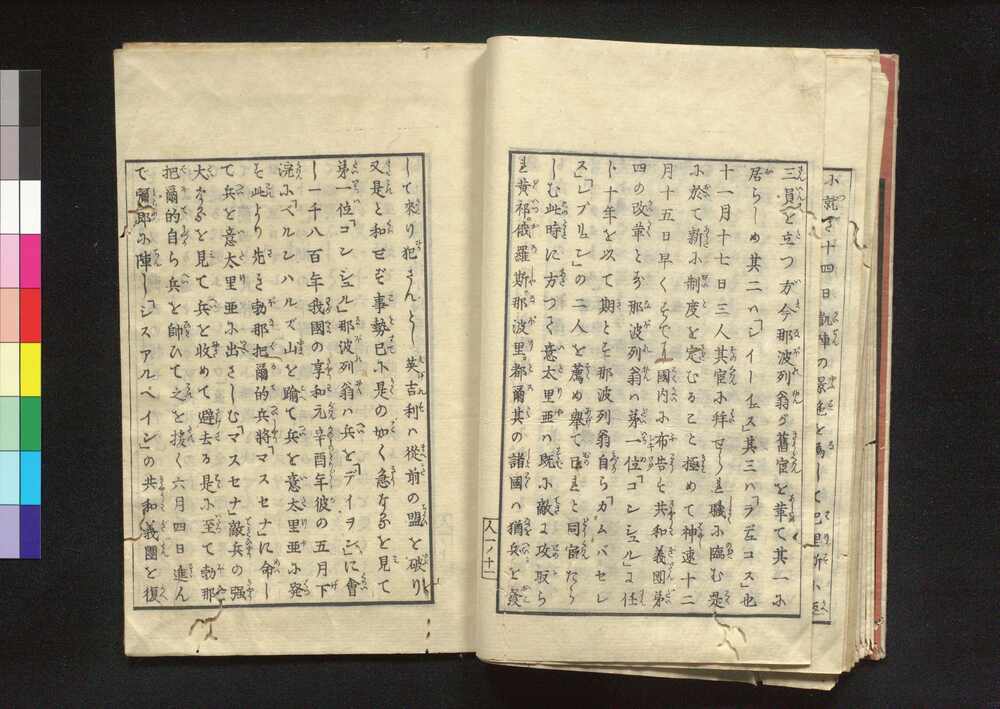 三員を立つ方今那波列翁ガ舊宦を革て其一ニ
居らしめ其二ハ「レイーイユス」其三ハ「ラデュコス」也
十一月十七日三人其宦ニ拜せられ職ニ臨む是
ニ於て新ニ制度を定むること極めて神速十二
月十五日早く國内ニ布告せ共和義國第
四の改革とす那波列翁ハ第一位「コンシュル」に任
十年を以て期とす那波列翁自ら「カムバセレ
ス」「レブリュン」の二人を薦め舉て同僚たら
しむ此時に方つて意太里亜ハ既ニ敵に攻取ら
れ黄祁俄羅斯那波里都爾其の諸國ハ猶兵を發
人一ノ十一
して來り犯さんとし英吉利ハ從前の盟を破り
又是と和せず事勢已ニ是の如く急なるを見て
第一位「コンシュル」那波列翁ハ兵を「デイヲン」に會
し一千八百年我國の享和元辛酉年彼の五月下
浣ニ「ベルンハルズ」山を踰て兵を意太里亜ニ發
す此より先き勃那把爾的兵將「マスセナ」に命し
て兵を意太里亜ニ出さしむ「マスセナ」敵兵の强
大なるを見て兵を收めて避去る是ニ至て勃那
把爾的自ら兵を帥ひて之を援く六月四日進ん
て彌郎ニ陣し「シスアルペイン」の共和義國を復